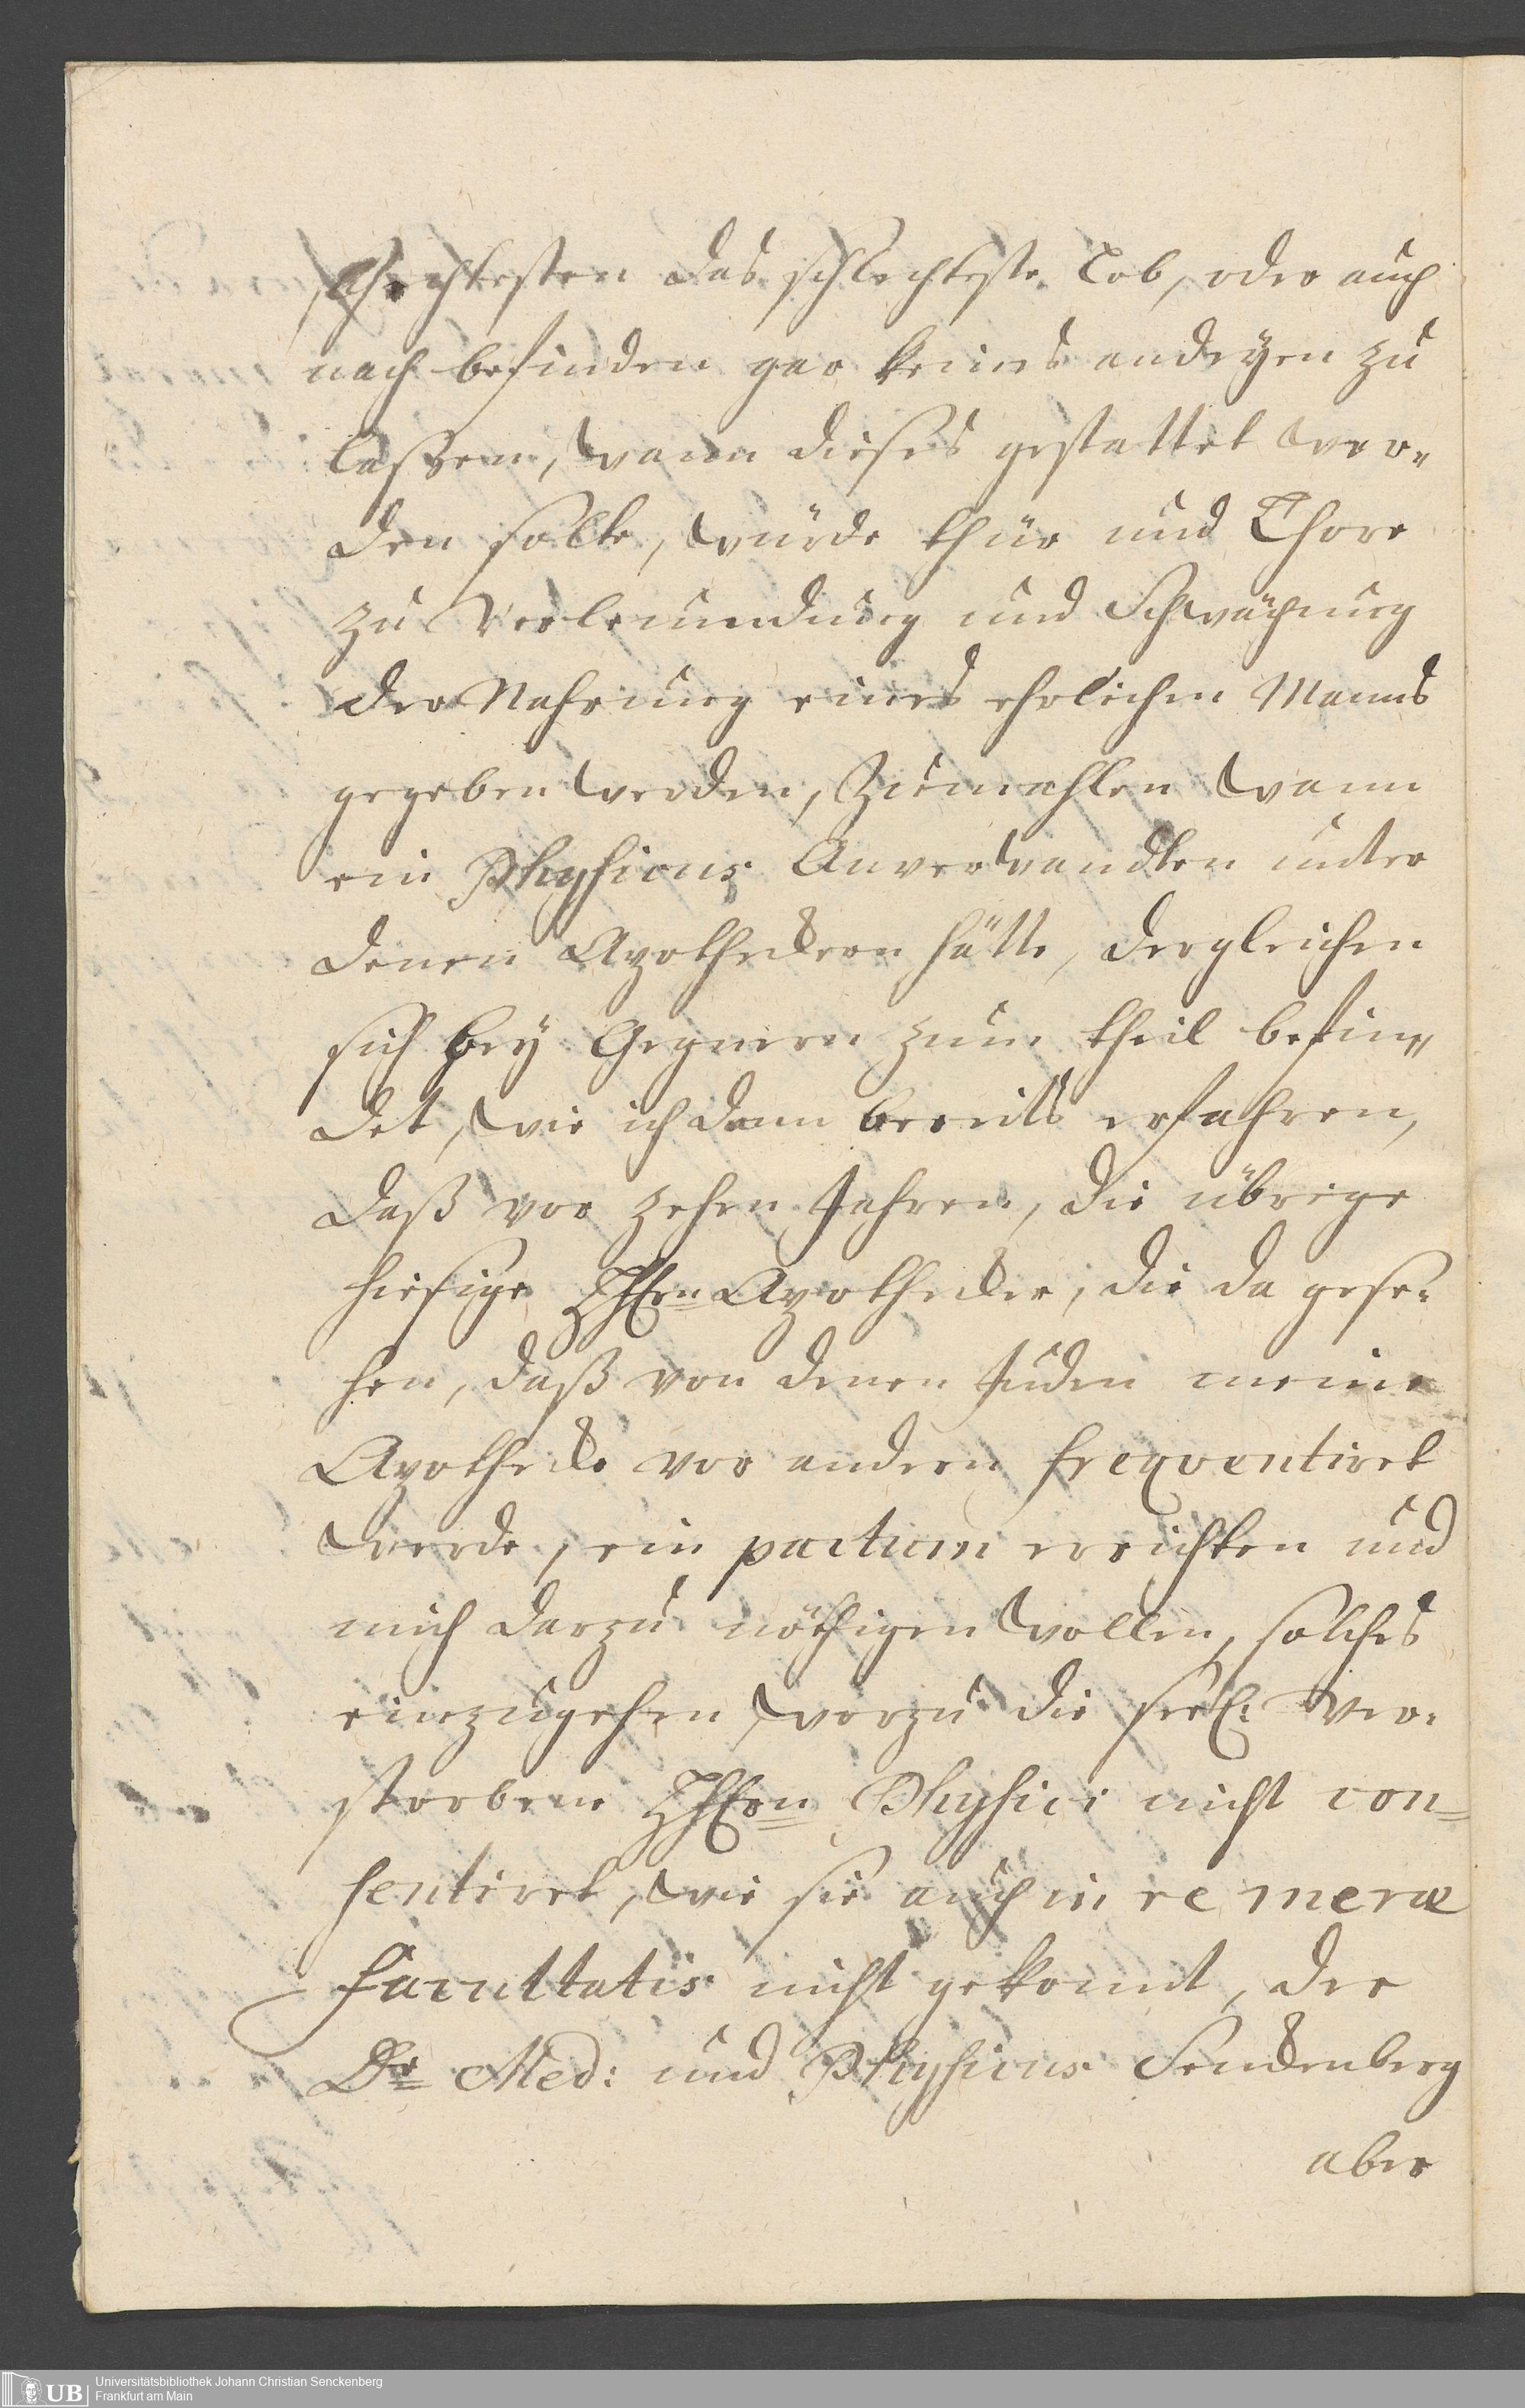 schlechtesten das schlechteste Lob, oder auch
nach befinden gar keines andeyen zu
lassen, wann dieses gestattet wer„
den solte, würde thür und Thore
zu Verleumdung und Schwächung
der Nahrung eines ehrlichen Manns
gegeben werden, Zumahlen wann
ein Physicus Anverwandten unter
denen Apotheckern hätte, dergleichen
sich bey Gegnern zum theil befin„
det, wie ich dann bereits erfahren,
daß vor zehen Jahren, die übrige
hiesige HHrn Apothecker, die da gese„
hen, daß von denen Juden meine
Apothecke vor andern freqventiret
werde, ein pactum errichten und
mich darzu nöthigen wollen, solches
einzugehen, worzu die seel: Ver„
storbene HHrn Physici nicht con„
sentiret, wie sie auch in re meræ
facultatis nicht gekonnt, der
Dr Med: und Physicus Senckenberg
aber
UB Universitätsbibliothek Johann Christian Senckenberg
Frankfurt am Main